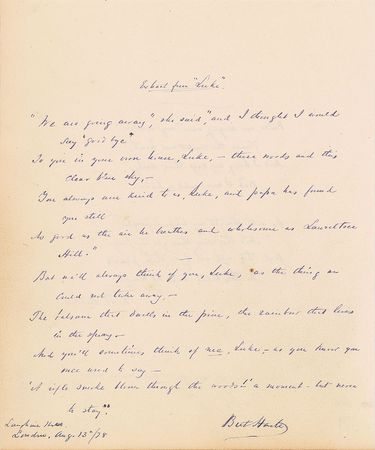 Extract from "Luke".
"We are going away", she said, "and I thought I would
say 'good bye'
To you in your own house, Luke, – these woods and this
clear blue sky, –
You've always been kind to us, Luke, and papa has found
you still
As good as the air he breathes and wholesome as Laurel tree
Hill."
But we'll always think of you, Luke, as the thing we
could not take away –
The balsam that dwells in the pine, the rainbow that lives
in the spray –
And you'll sometimes think of me, Luke, – as you know you
once used to say –
'A rifle smoke blown through the woods!' a moment – but never
to stay".
Bret Harte
Langham Hotel
London, Aug. 13th/78